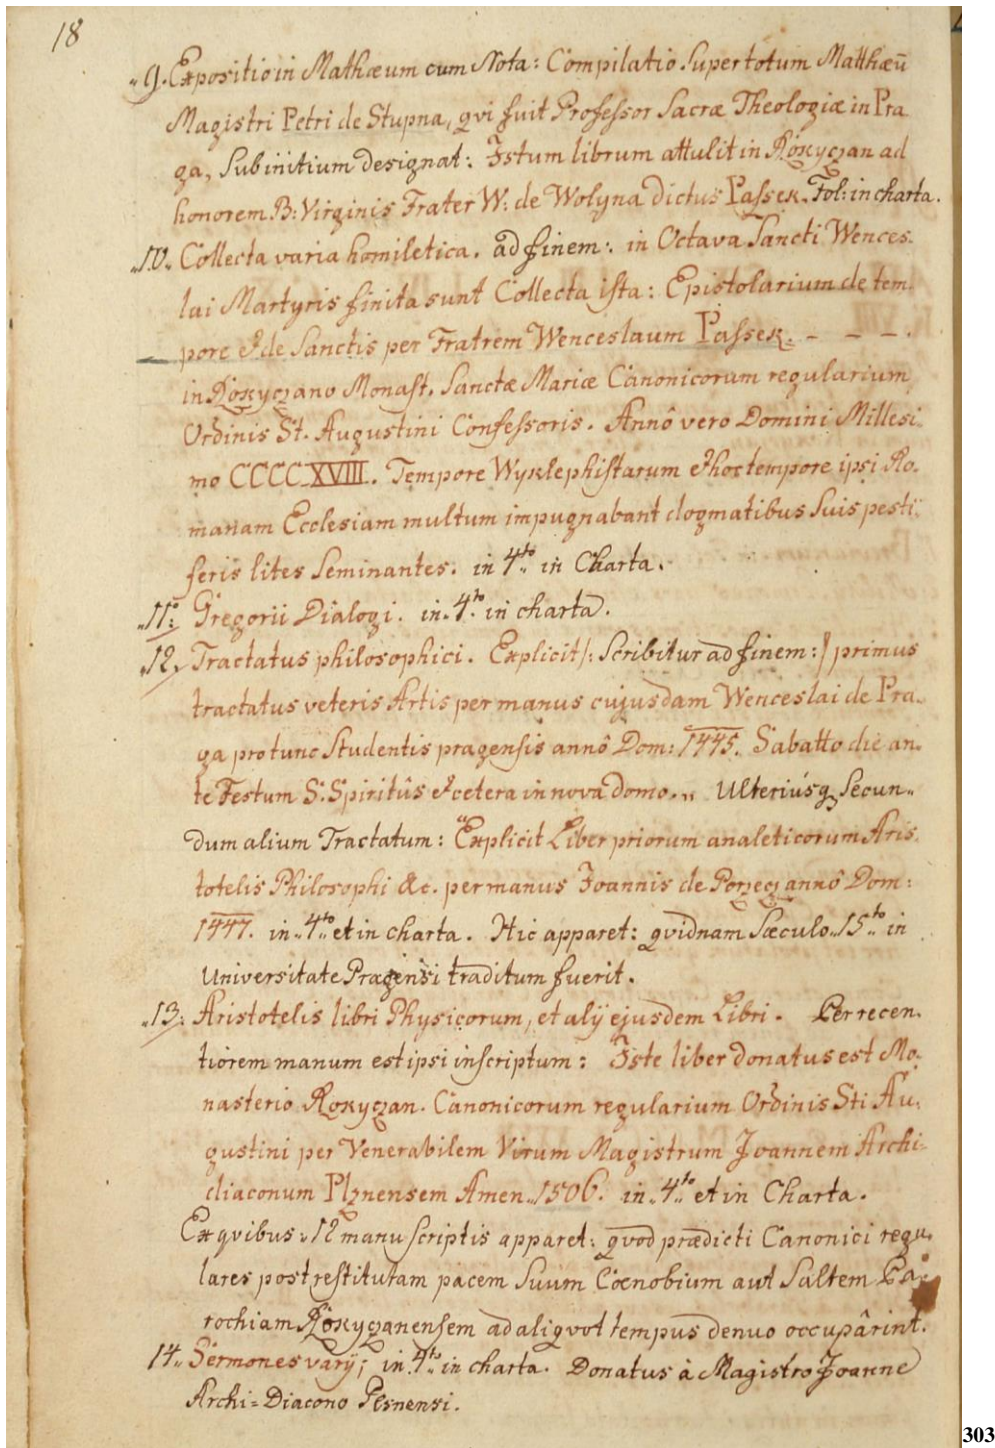 18
„9. Expositio in Mathæum cum Nota: Compilatio Super totum Matthæū
Magistri Petri de Stupna, qvi fuit Professor Sacræ Theologiæ in Pra
ga, Sub initium designat: Istum librum attulit in Rokyczan ad
honorem B: Virginis Frater W: de Wolyna dictus Passek. Fol: in charta.
„10. Collecta varia homiletica. ad finem: in Octava Sancti Wences.
lai Martyris finita sunt Collecta ista: Epistolarium de tem
pore & de Sanctis per Fratrem Wenceslaum Passek. – – – .
in Rokyczano Monast. Sanctæ Mariæ Canonicorum regularium
Ordinis St. Augustini Confessoris. Annô vero Domini Millesi.
mo CCCC XVIII. Tempore Wyklephistarum & hoc tempore ipsi Ro.
manam Ecclesiam multum impugnabant dogmatibus Suis pesti
feris lites Seminantes. in 4to in Charta.
„11: Gregorii Dialogi. in 4to in charta.
„12. Tractatus philosophici. Explicit /: Scribitur ad finem :/ primus
tractatus veteris Artis per manus cujusdam Wenceslai de Pra.
ga pro tunc Studentis pragensis annô Dom: 1445. Sabatto die an.
te Festum S: Spiritûs & cetera in nova domo. „ Ulteriúsq Secun„
dum alium Tractatum: Explicit Liber priorum analeticorum Aris.
totelis Philosophi &c. per manus Joannis de Porzecz annô Dom:
1447. in 4to et in charta. Hic apparet: qvidnam Sæculo 15to in
Universitate Pragensi traditum fuerit.
„13: Aristotelis libri Physicorum, et alÿ ejusdem Libri. Per recen.
tiorem manum est ipsi inscriptum: Iste liber donatus est Mo.
nasterio Rokyczan. Canonicorum regularium Ordinis Sti Au.
gustini per Venerabilem Virum Magistrum Joannem Archi
diaconum Plznensem Amen 1506. in 4to et in Charta.
Ex qvibus 12 manuscriptis apparet: qvod prædicti Canonici regu.
lares post restitutam pacem Suum Cœnobium aut Saltem Pa.
rochiam Rokyczanensem ad aliqvot tempus denuo occupârint.
14„ Sermones varÿ; in 4to in charta. Donatus à Magistro Joanne
Archi=Diacono Plsnensi.
303